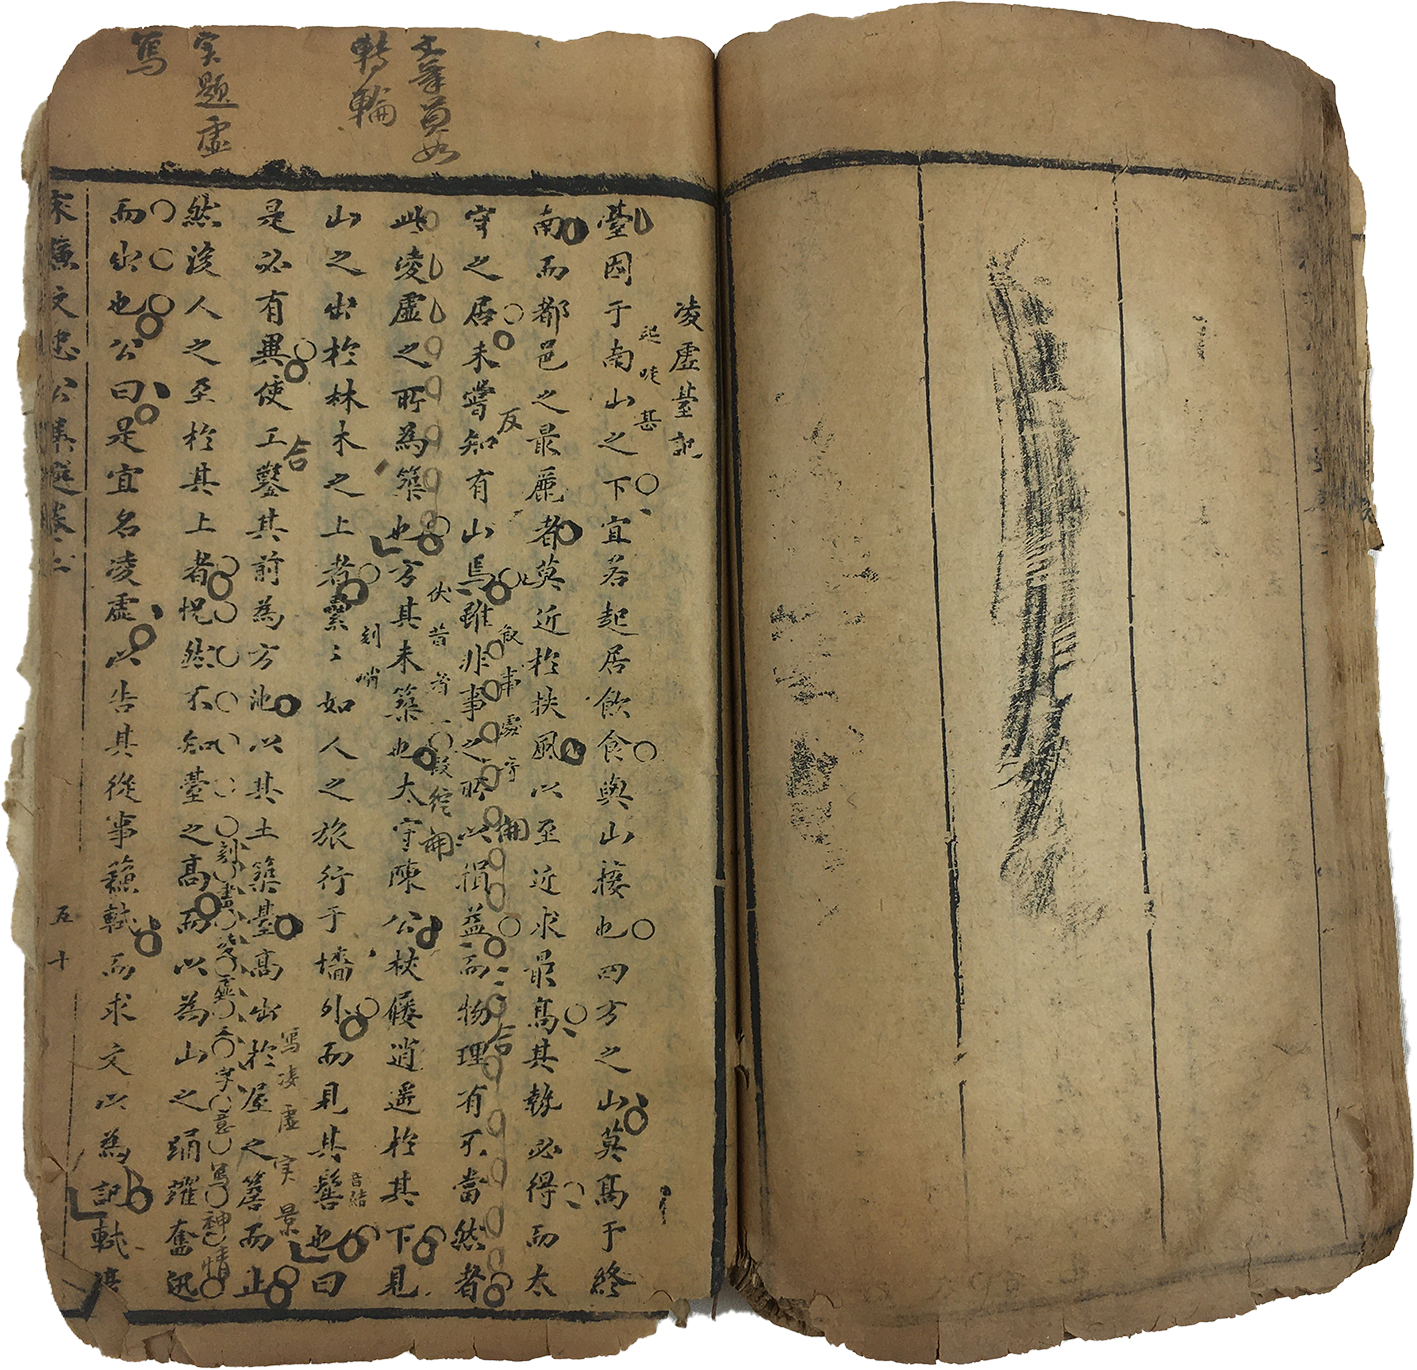 凌虛臺記
臺因于南山之下宜若起居飲食與山接也四方之山莫高于終
南而都邑之最麗者莫近於扶風以至近求最高其勢必得而太
守之居未嘗知有山焉雖非事之所以損益而物理有不當然者
此凌虛之所為築也方其未築也太守陳公杖屨逍遥於其下見
山之出於林木之上者纍〻如人之旅行于墻外而見其髻也曰
是必有異使工鑿其前為方池以其土築臺高出於屋之簷而止
然後人之至於其上者怳然不知臺之高而以為山之踊躍奮迅
而出也公曰是宜名凌虛以告其從事蘇軾而求文以為記軾
宋蘇文忠公集選卷二
五十
起咗甚
反
敘事處字
開
合
伏昔者一段
刻哨
音結
合
寫凌虛実景
刻畫凌虛二字意寫神情
筆員如
轉輪
実題虛
寫